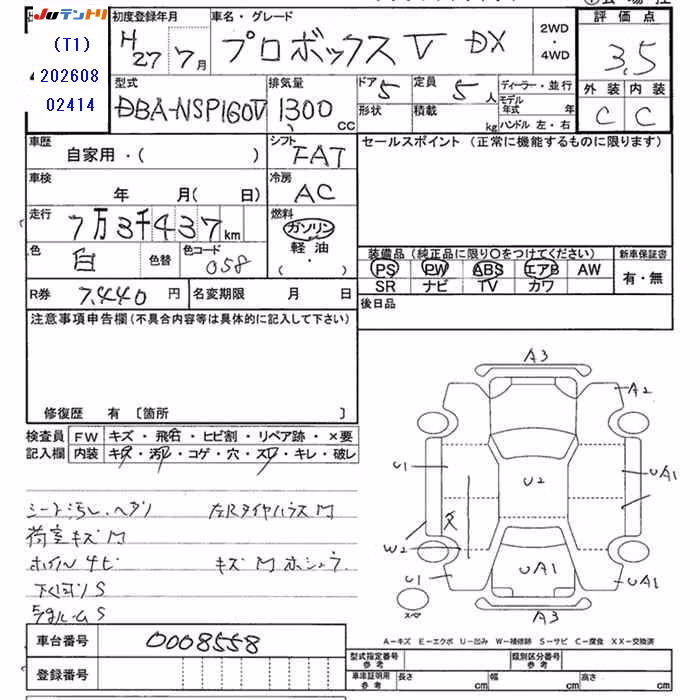 JUテントリ
(T1)
202608
02414
初度登録年月
H27 7月
車名・グレード
プロボックスV DX
2WD
・
4WD
評価点
3.5
型式
DBA-NSP160V
排気量
1300 CC
ドア 5
定員 5人
ディーラー・並行
モデル年式 年
形状
積載 kg
ハンドル 左・右
外装 内装
C C
車歴
自家用・( )
シフト
FAT
セールスポイント (正常に機能するものに限ります)
車検
年 月( 日)
冷房
AC
走行
7万3千437km
燃料
ガソリン
軽油
( ・ )
色
白
色替
色コード
058
装備品 (純正品に限り○をつけてください)
新車保証書
PS PW ABS エアB AW
有・無
SR ナビ TV カワ
R券 7,440円
名変期限 月 日
後日品
注意事項申告欄 (不具合内容等は具体的に記入して下さい)
修復歴 有 〔箇所 〕
検査員
記入欄
FW キズ・飛石・ヒビ割・リペア跡・×要
内装 キズ・汚レ・コゲ・穴・スレ・キレ・破レ
シート汚レ、ヘタリ 左Rタイヤハウス M
荷室キズ M
ホイルサビ キズ M ホシュウ
下回リ S
S
A3
A2
U1
U2
UA1
W2
U1
UA1
UA1
A3
A-キズ E-エクボ U-凹み W-補修跡 S-サビ C-腐食 XX-交換済
車台番号 0008558
登録番号
型式指定番号
参考
類別区分番号
参考
車庫証明用
参考
長さ cm
幅 cm
高さ cm